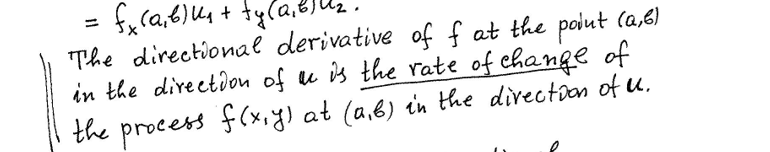 = fₓ(a,b)u₁ + f_y(a,b)u₂.
The directional derivative of f at the point (a,b)
in the direction of u is the rate of change of
the process f(x,y) at (a,b) in the direction of u.